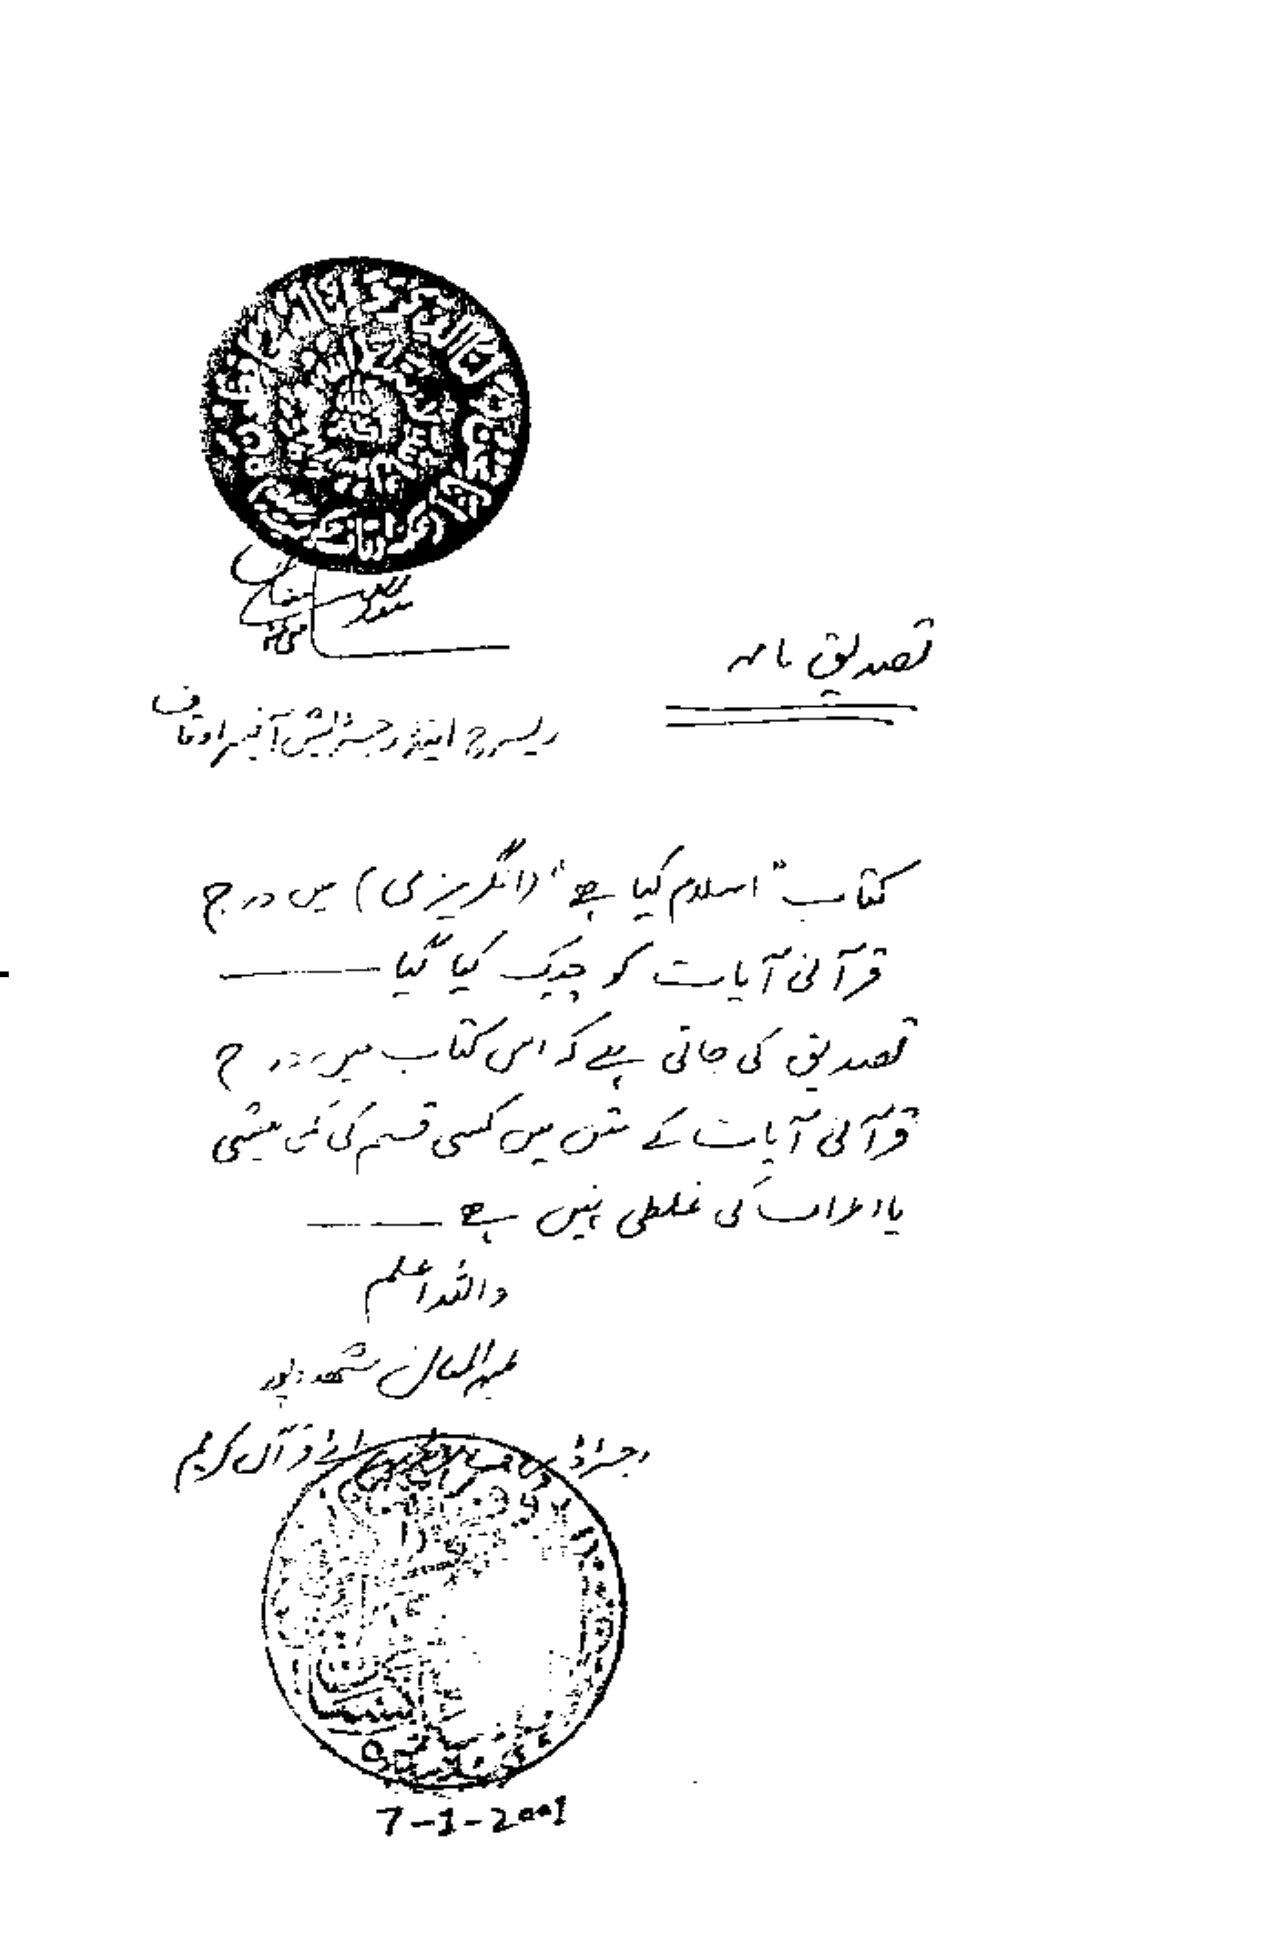 تصدیق نامہ
ریسرچ اینڈ رجسٹریشن آفیسر اوقاف
کتاب "اسلام کیا ہے" (انگریزی) میں درج
قرآنی آیات کو چیک کیا گیا
تصدیق کی جاتی ہے کہ اس کتاب میں درج
قرآنی آیات کے متن میں کسی قسم کی کمی بیشی
یا اعراب کی غلطی نہیں ہے
واللہ اعلم
قرآن کریم
7-1-2001